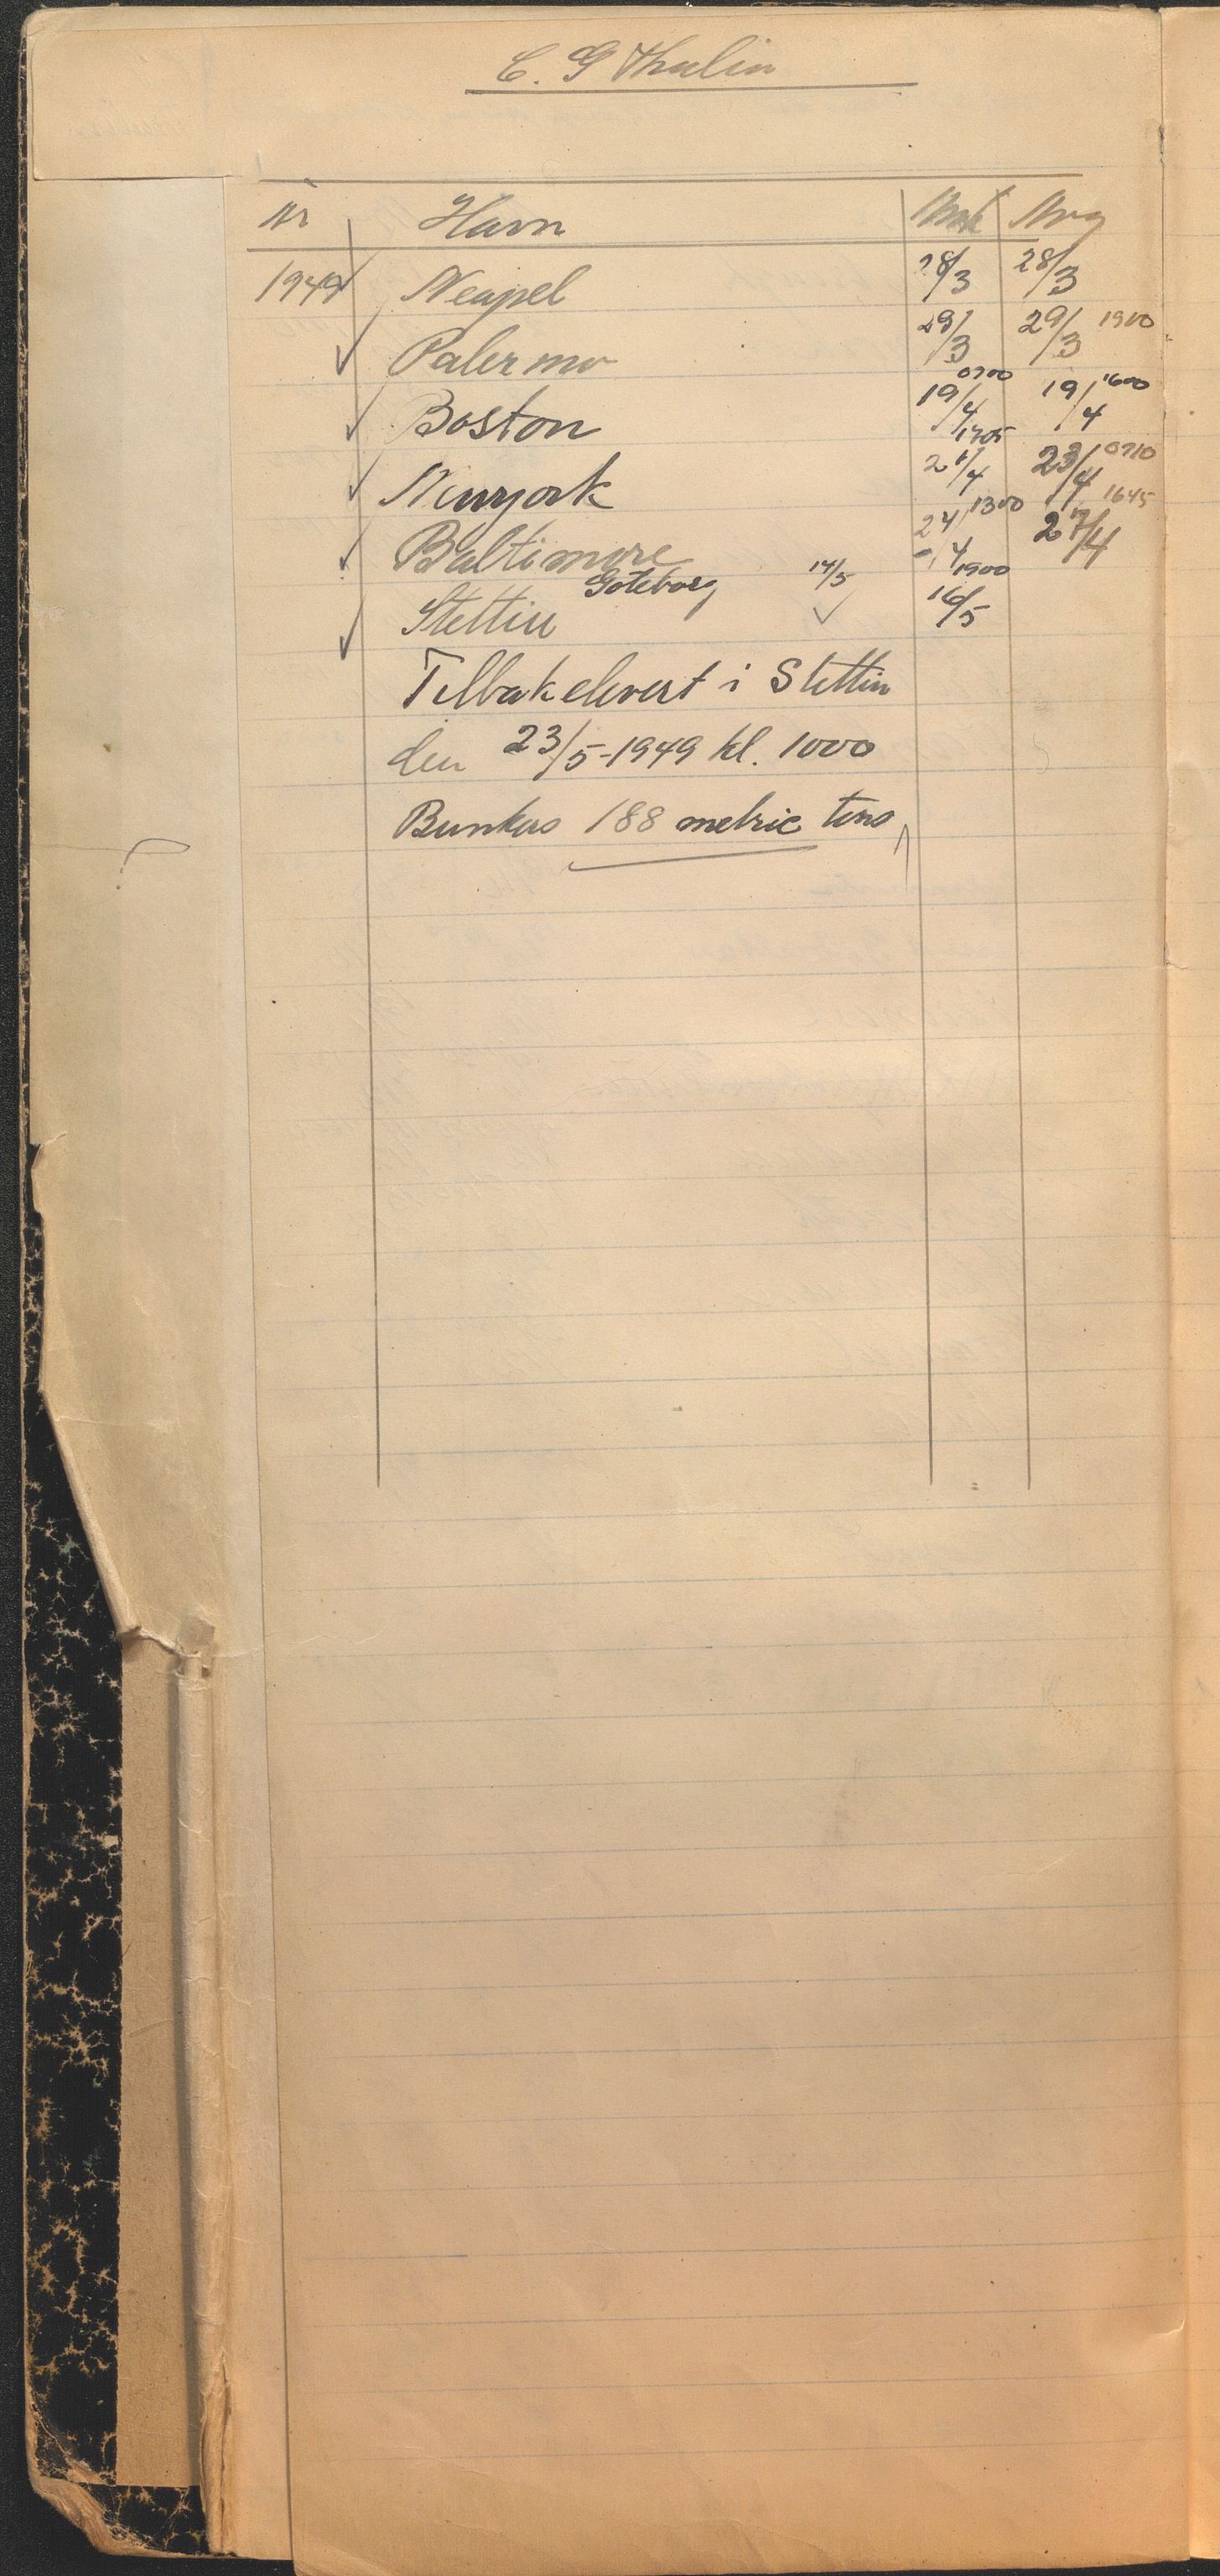 C. G Thulin
Nr Havn Ank Avg
1949 Neapel 28/3 28/3
Palermo 29/3 29/3 1900
Boston 19/4 0700 19/4 1600
Newyork 21/4 1705 23/4 0710
Baltimore 24/4 1300 27/4 1645
Goteborg 14/5
Stettin 16/5 1900
Tilbakelevert i Stettin
den 23/5-1949 kl. 1000
Bunkers 188 metric tons